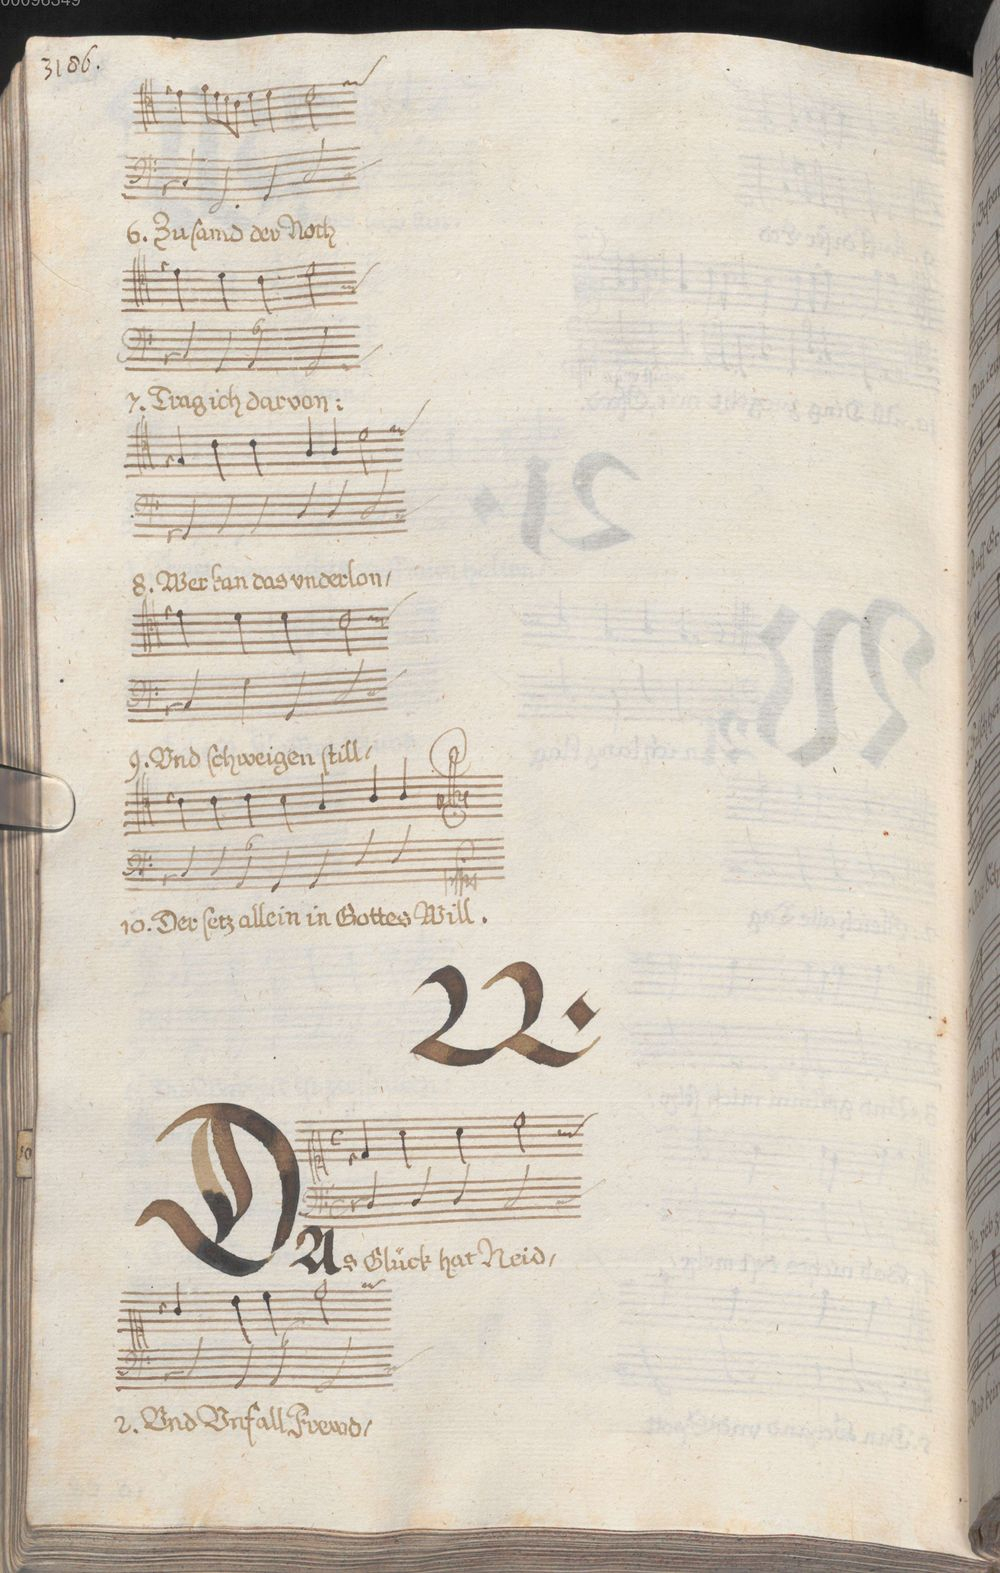 3186.
6. Zusamd der Noth
7. Trag ich darvon:
8. Wer kan das vnderlon/
9. Vnd schweigen still/
10. Der setz allein in Gottes Will.
22.
DAs Glück hat Neid/
2. Vnd Vnfall Frewd/